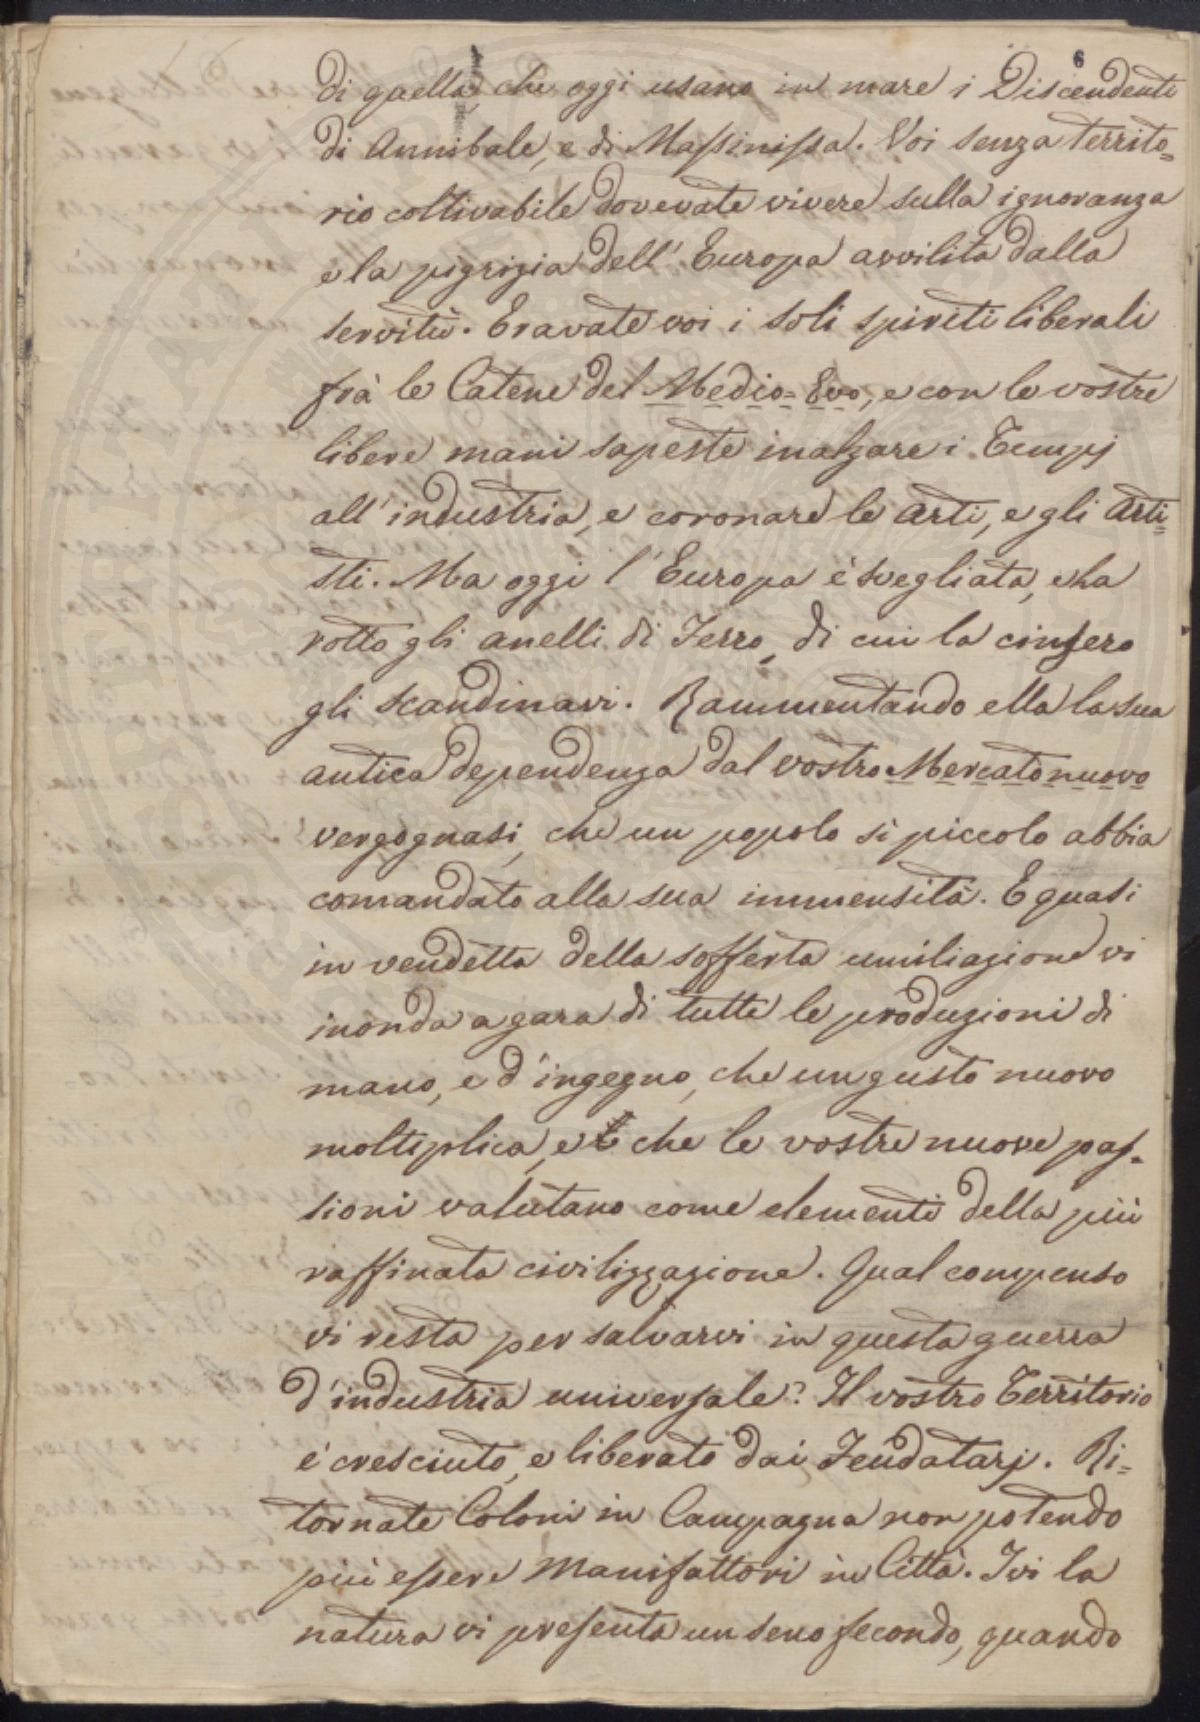 6
di quella, che oggi usano in mare i Discendenti
di Annibale, e di Massinissa. Voi senza territo=
rio coltivabile dovevate vivere sulla ignoranza
e la pigrizia dell' Europa avvilita dalla
servitù. Eravate voi i soli spiriti liberali
frà le Catene del Medio-Evo, e con le vostre
libere mani sapeste inalzare i Tempj
all' industria, e coronare le arti, e gli Arti=
sti. Ma oggi l' Europa è svegliata, e ha
rotto gli anelli di Ferro, di cui la cinsero
gli Scandinavi. Rammentando ella la sua
antica dependenza dal vostro Mercato nuovo
vergognasi, che un popolo sì piccolo abbia
comandato alla sua immensità. E quasi
in vendetta della sofferta umiliazione vi
inonda a gara di tutte le produzioni di
mano, e d' ingegno, che un gusto nuovo
moltiplica, e che le vostre nuove pas=
sioni valutano come elementi della più
raffinata civilizzazione. Qual compenso
vi resta per salvarvi in questa guerra
d' industria universale? Il vostro Territorio
è cresciuto, e liberato dai Feudatarj. Ri=
tornate Coloni in Campagna non potendo
più essere Manifattori in Città. Ivi la
natura vi presenta un seno fecondo, quando